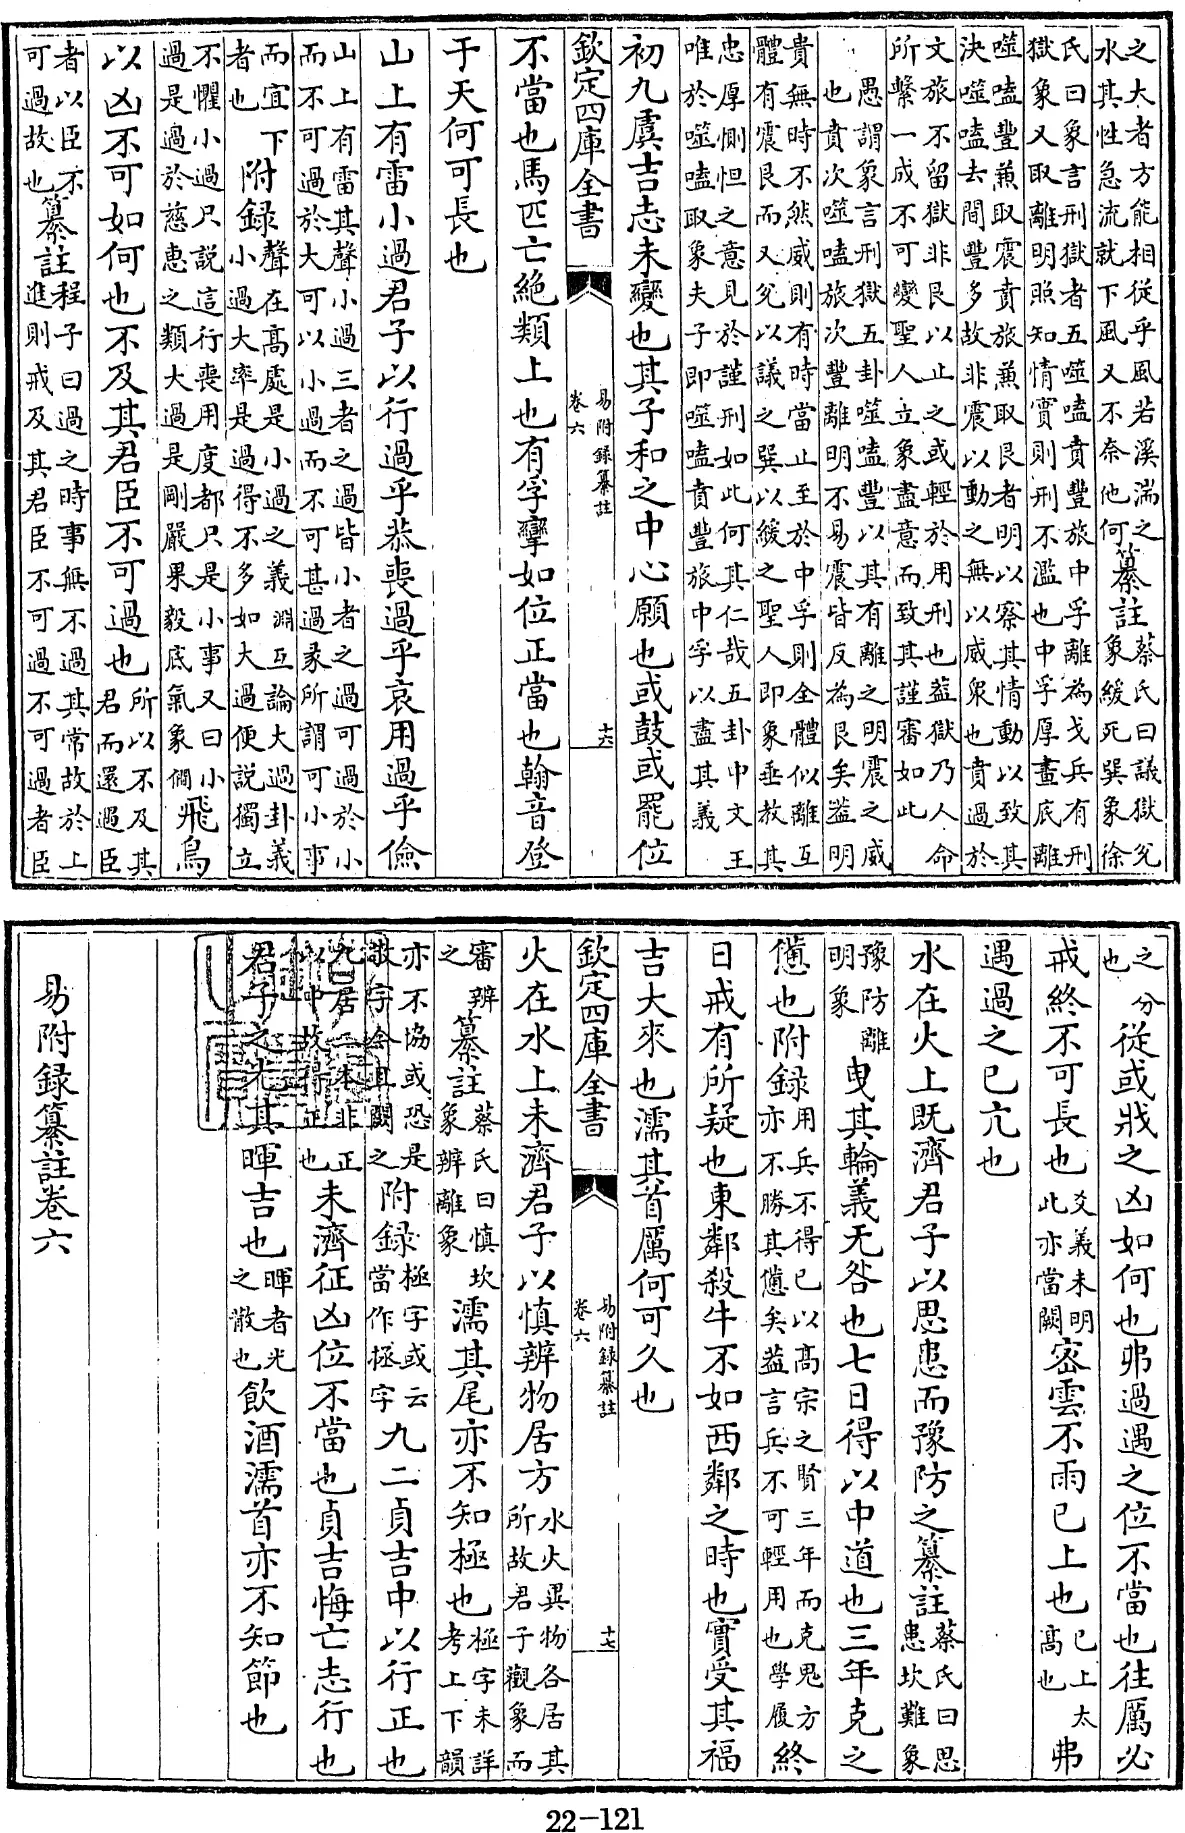 之大者方能相從乎風若溪湍之
水其性急流就下風又不奈他何
纂註
蔡氏曰議獄兌
象緩死巽象徐
氏曰象言刑獄者五噬嗑賁豐旅中孚離為戈兵有刑
獄象又取離明照知情實則刑不濫也中孚厚畫底離
噬嗑豐兼取震賁旅兼取艮者明以察其情動以致其
決噬嗑去間豐多故非震以動之無以威衆也賁過於
文旅不留獄非艮以止之或輕於用刑也蓋獄乃人命
所繫一成不可變聖人立象盡意而致其謹審如此
愚謂象言刑獄五卦噬嗑豐以其有離之明震之威
也賁次噬嗑旅次豐離明不易震皆反為艮矣蓋明
貴無時不然威則有時當止至於中孚則全體似離互
體有震艮而又兌以議之巽以緩之聖人即象垂教其
忠厚惻怛之意見於謹刑如此何其仁哉五卦中文王
唯於噬嗑取象夫子即噬嗑賁豐旅中孚以盡其義
初九虞吉志未變也其子和之中心願也或鼓或罷位
欽定四庫全書
易附録纂註
卷六
十六
不當也馬匹亡絶類上也有孚攣如位正當也翰音登
于天何可長也
山上有雷小過君子以行過乎恭喪過乎哀用過乎儉
山上有雷其聲小過三者之過皆小者之過可過於小
而不可過於大可以小過而不可甚過彖所謂可小事
而宜下
者也
附録
聲在高處是小過之義淵互論大過卦義
小過大率是過得不多如大過便說獨立
不懼小過只說這行喪用度都只是小事又曰小
過是過於慈惠之類大過是剛嚴果毅底氣象僩
飛鳥
以凶不可如何也不及其君臣不可過也
所以不及其
君而還過臣
者以臣不
可過故也
纂註
程子曰過之時事無不過其常故於上
進則戒及其君臣不可過不可過者臣
之分
也
從或戕之凶如何也弗過遇之位不當也往厲必
戒終不可長也
爻義未明
此亦當闕
密雲不雨已上也
已上太
高也
弗
遇過之已亢也
水在火上既濟君子以思患而豫防之
纂註
蔡氏曰思
患坎難象
豫防離
明象
曳其輪義无咎也七日得以中道也三年克之
憊也
附録
用兵不得已以高宗之賢三年而克鬼方
亦不勝其憊矣蓋言兵不可輕用也學履
終
日戒有所疑也東鄰殺牛不如西鄰之時也實受其福
吉大來也濡其首厲何可久也
欽定四庫全書
易附録纂註
卷六
十七
火在水上未濟君子以慎辨物居方
水火異物各居其
所故君子觀象而
審辨
之
纂註
蔡氏曰慎坎
象辨離象
濡其尾亦不知極也
極字未詳
考上下韻
亦不協或恐是
敬字今且闕之
附録
極字或云
當作拯字
九二貞吉中以行正也
九居二本非正
以中故得正也
未濟征凶位不當也貞吉悔亡志行也
君子之光其暉吉也
暉者光
之散也
飲酒濡首亦不知節也
易附録纂註卷六
22-121